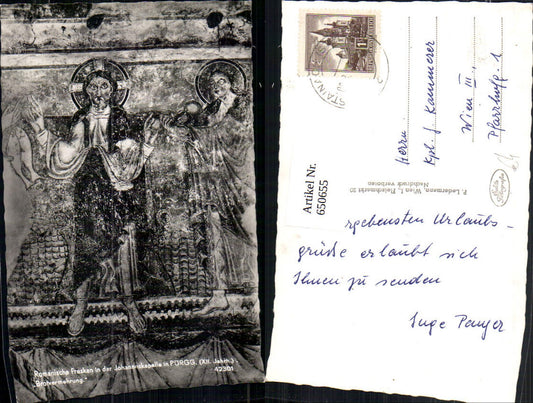 Romanische Fresken in der Johanniskapelle in PÜRGG. (XII. Jahrh.)
„Brotvermehrung."
42301
Artikel Nr.
650655
P. Ledermann, Wien I, Fleischmarkt 20
Nachdruck verboten
Herrn
Kpl. J. Kammerer
Wien III,
Pfarrhofg. 1
rgebensten Urlaubs-
grüße erlaubt sich
Ihnen zu senden
Inge